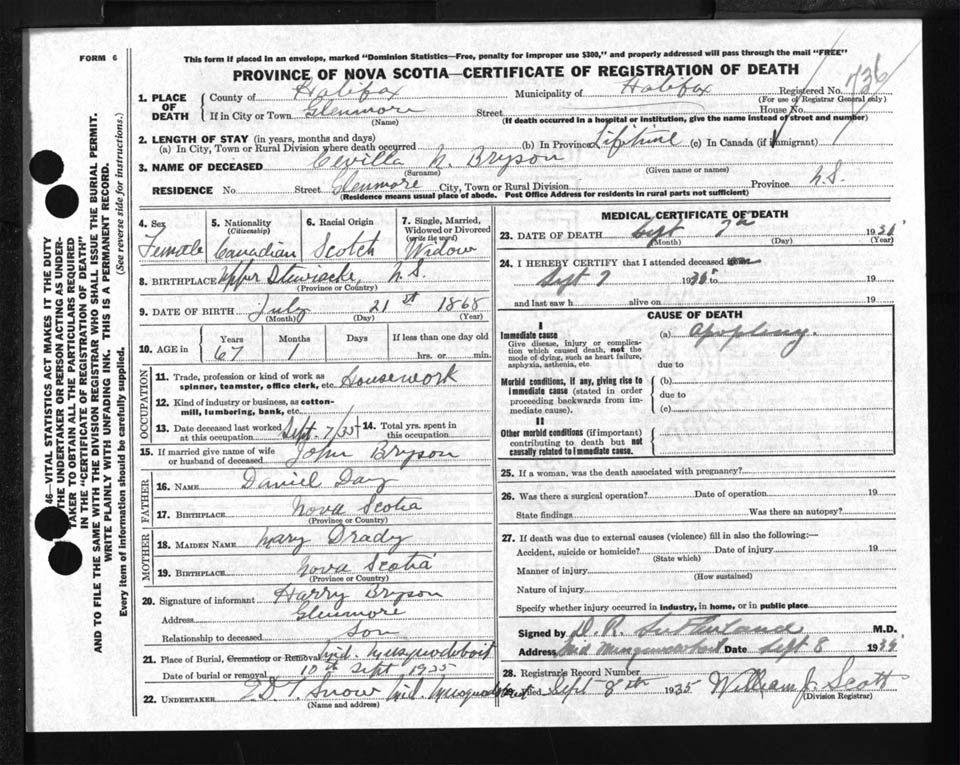 FORM 6
This form if placed in an envelope, marked "Dominion Statistics—Free, penalty for improper use $300," and properly addressed will pass through the mail "FREE"
PROVINCE OF NOVA SCOTIA—CERTIFICATE OF REGISTRATION OF DEATH
736
1. PLACE OF DEATH County of Halifax Municipality of Halifax Registered No.
(For use of Registrar General only)
If in City or Town Glenmore Street House No.
(Name) (If death occurred in a hospital or institution, give the name instead of street and number)
2. LENGTH OF STAY (in years, months and days)
(a) In City, Town or Rural Division where death occurred (b) In Province Lifetime (c) In Canada (if immigrant)
3. NAME OF DECEASED Cevilla N. Bryson
(Surname) (Given name or names)
RESIDENCE No Street Glenmore City, Town or Rural Division Province N.S.
(Residence means usual place of abode. Post Office Address for residents in rural parts not sufficient)
4. Sex Female
5. Nationality (Citizenship) Canadian
6. Racial Origin Scotch
7. Single, Married, Widowed or Divorced (write the word) Widow
8. BIRTHPLACE Upper Stewiacke, N.S.
(Province or Country)
9. DATE OF BIRTH July 21st 1868
(Month) (Day) (Year)
10. AGE in Years Months Days If less than one day old
67 1 hrs. or min.
OCCUPATION
11. Trade, profession or kind of work as spinner, teamster, office clerk, etc. Housework
12. Kind of industry or business, as cotton-mill, lumbering, bank, etc.
13. Date deceased last worked at this occupation Sept. 7/35 14. Total yrs. spent in this occupation
15. If married give name of wife or husband of deceased John Bryson
FATHER
16. NAME Daniel Day
17. BIRTHPLACE Nova Scotia
(Province or Country)
MOTHER
18. MAIDEN NAME Mary Drady
19. BIRTHPLACE Nova Scotia
(Province or Country)
20. Signature of informant Harry Bryson
Address Glenmore
Relationship to deceased Son
21. Place of Burial, Cremation or Removal Mid. Musquodoboit
Date of burial or removal 10th Sept 1935
22. UNDERTAKER Snow Mid. Musquodoboit
(Name and address)
MEDICAL CERTIFICATE OF DEATH
23. DATE OF DEATH Sept 7th 193
(Month) (Day) (Year)
24. I HEREBY CERTIFY that I attended deceased from
Sept 7 19 to 19
and last saw h alive on 19
CAUSE OF DEATH
I
Immediate cause
Give disease, injury or complication which caused death, not the mode of dying, such as heart failure, asphyxia, asthenia, etc
(a) apoplexy.
due to
Morbid conditions, if any, giving rise to immediate cause (stated in order proceeding backwards from immediate cause).
(b)
due to
(c)
II
Other morbid conditions (if important) contributing to death but not causally related to immediate cause.
25. If a woman, was the death associated with pregnancy?
26. Was there a surgical operation? Date of operation 19
State findings Was there an autopsy?
27. If death was due to external causes (violence) fill in also the following:—
Accident, suicide or homicide? Date of injury 19
(State which)
Manner of injury
(How sustained)
Nature of injury
Specify whether injury occurred in industry, in home, or in public place
Signed by D. R. Sutherland M.D.
Address Mid Musquodoboit Date Sept 8 193
28. Registrar's Record Number
Filed Sept 8th 1935 William J. Scott
(Division Registrar)
46—VITAL STATISTICS ACT MAKES IT THE DUTY
THE UNDERTAKER OR PERSON ACTING AS UNDER-
TAKER TO OBTAIN ALL THE PARTICULARS REQUIRED
IN THE "CERTIFICATE OF REGISTRATION OF DEATH"
AND TO FILE THE SAME WITH THE DIVISION REGISTRAR WHO SHALL ISSUE THE BURIAL PERMIT.
WRITE PLAINLY WITH UNFADING INK. THIS IS A PERMANENT RECORD.
Every item of information should be carefully supplied. (See reverse side for instructions.)